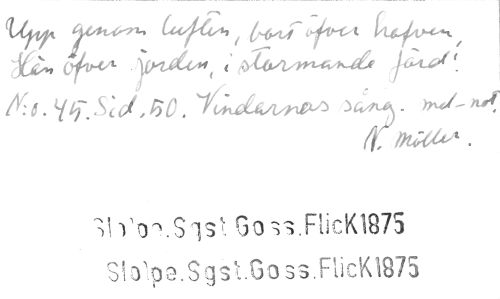 Upp genom luften, bort öfver hafven,
Hän öfver jorden, i stormande färd!
N:o. 45. Sid. 50. Vindarnas sång. med not.
N. Möller.
Slo'pe.Sgst.Goss.FlicK1875
Slo'pe.Sgst.Goss.FlicK1875